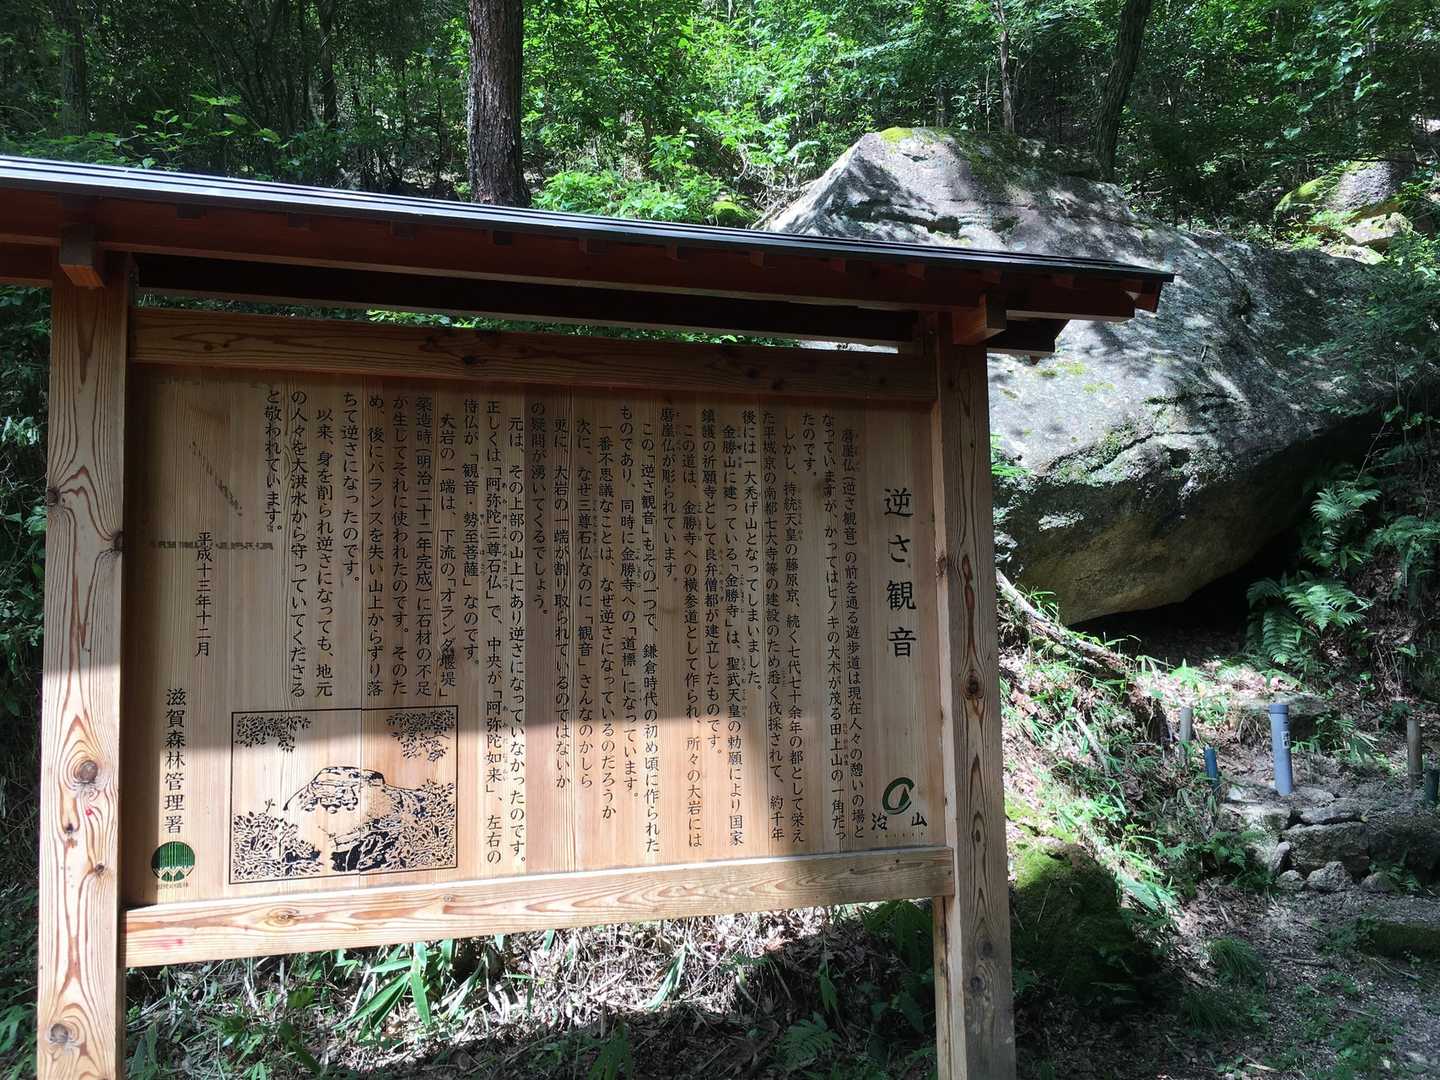 逆さ観音
磨崖仏(逆さ観音)の前を通る遊歩道は現在人々の憩いの場と
なっていますが、かってはヒノキの大木が茂る田上山の一角だっ
たのです。
しかし、持統天皇の藤原京、続く七代七十余年の都として栄え
た平城京の南都七大寺等の建設のため悉く伐採されて、約千年
後には一大禿げ山となってしまいました。
金勝山に建っている「金勝寺」は、聖武天皇の勅願により国家
鎮護の祈願寺として良弁僧都が建立したものです。
この道は、金勝寺への横参道として作られ、所々の大岩には
磨崖仏が彫られています。
この「逆さ観音」もその一つで、鎌倉時代の初め頃に作られた
ものであり、同時に金勝寺への「道標」になっています。
一番不思議なことは、なぜ逆さになっているのだろうか
次に、なぜ三尊石仏なのに「観音」さんなのかしら
更に、大岩の一端が割り取られているのではないか
の疑問が湧いてくるでしょう。
元は、その上部の山上にあり逆さになっていなかったのです。
正しくは「阿弥陀三尊石仏」で、中央が「阿弥陀如来」、左右の
侍仏が「観音・勢至菩薩」なのです。
大岩の一端は、下流の「オランダ堰堤」
築造時(明治二十二年完成)に石材の不足
が生じてそれに使われたのです。そのた
め、後にバランスを失い山上からずり落
ちて逆さになったのです。
以来、身を削られ逆さになっても、地元
の人々を大洪水から守っていてくださる
と敬われています。
平成十三年十二月
滋賀森林管理署
治山